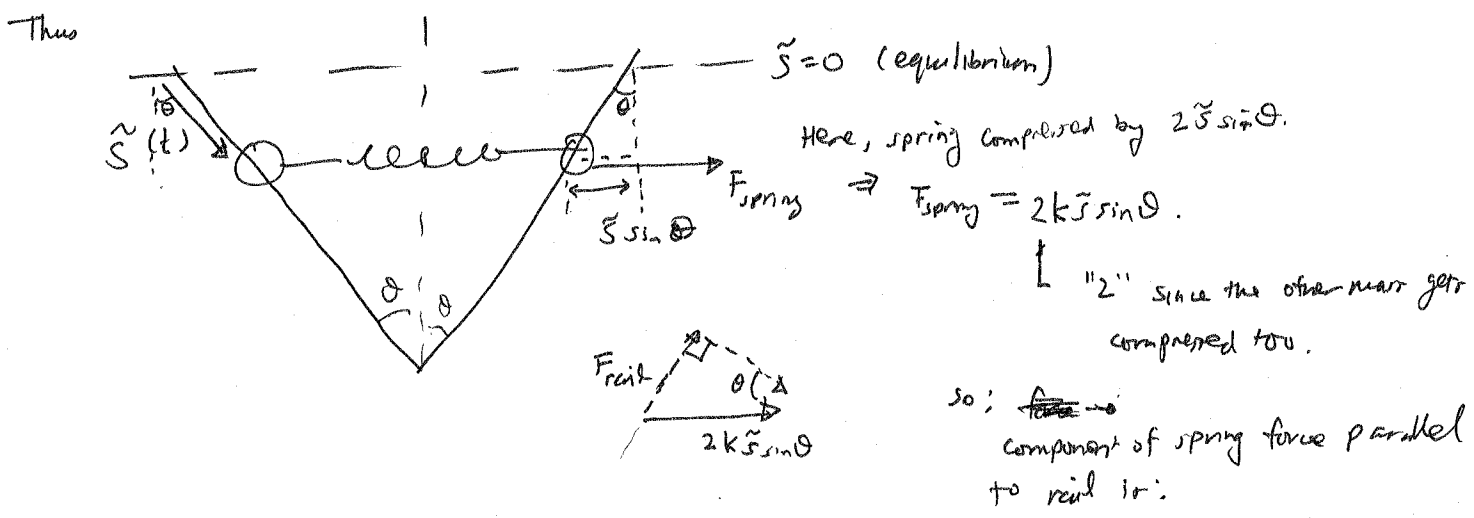 Thus
s̃ = 0 (equilibrium)
θ
θ
s̃(t)
Here, spring compressed by 2s̃ sinθ.
F_spring ⇒ F_spring = 2ks̃ sinθ.
s̃ sinθ
"2" since the other mass gets
compressed too.
θ
θ
F_rail
θ
2ks̃ sinθ
so:
component of spring force parallel
to rail is: